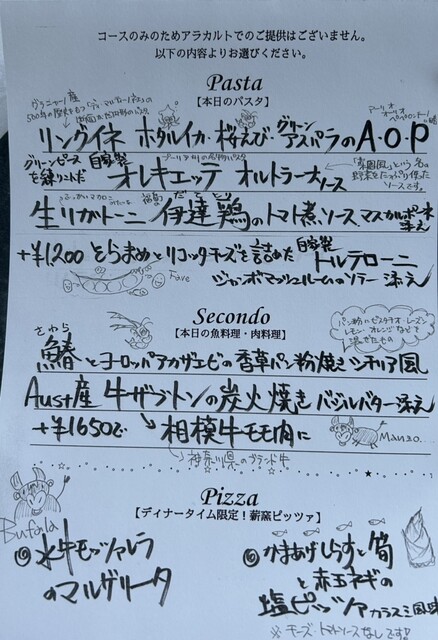 コースのみのためアラカルトでのご提供はございません。
以下の内容よりお選びください。
Pasta
【本日のパスタ】
グラニャーノ産
リングイネ ホタルイカ・桜えび・グリーンアスパラのA・O・P
グリーンピースを練りこんだ 自家製 オレキエッテ オルトラーナソース
「菜園風」という名の
野菜をたっぷり使った
ソースです。
生リガトーニ 伊達鶏のトマト煮ソース、マスカルポーネ添え
+¥1,200 そらまめとリコッタチーズを詰めた 自家製 トルテローニ
ジャンボマッシュルームのソテー添え
Fave
Secondo
【本日の魚料理・肉料理】
パン粉にピスタチオ・レーズン
レモン・オレンジなどを
混ぜたもの
さわら
鰆とヨーロッパアカザエビの香草パン粉焼きシチリア風
Aust産 牛ザブトンの炭火焼き バジルバター添え
+¥1650で→相模牛モモ肉に
Manzo...
神奈川県のブランド牛
Pizza
【ディナータイム限定！薪窯ピッツァ】
Bufala
◎水牛モッツァレラ
のマルゲリータ
◎かまあげしらすと筍
と赤玉ネギの
塩ピッツァ カラスミ風味
※チーズ、トマトソースなしです!